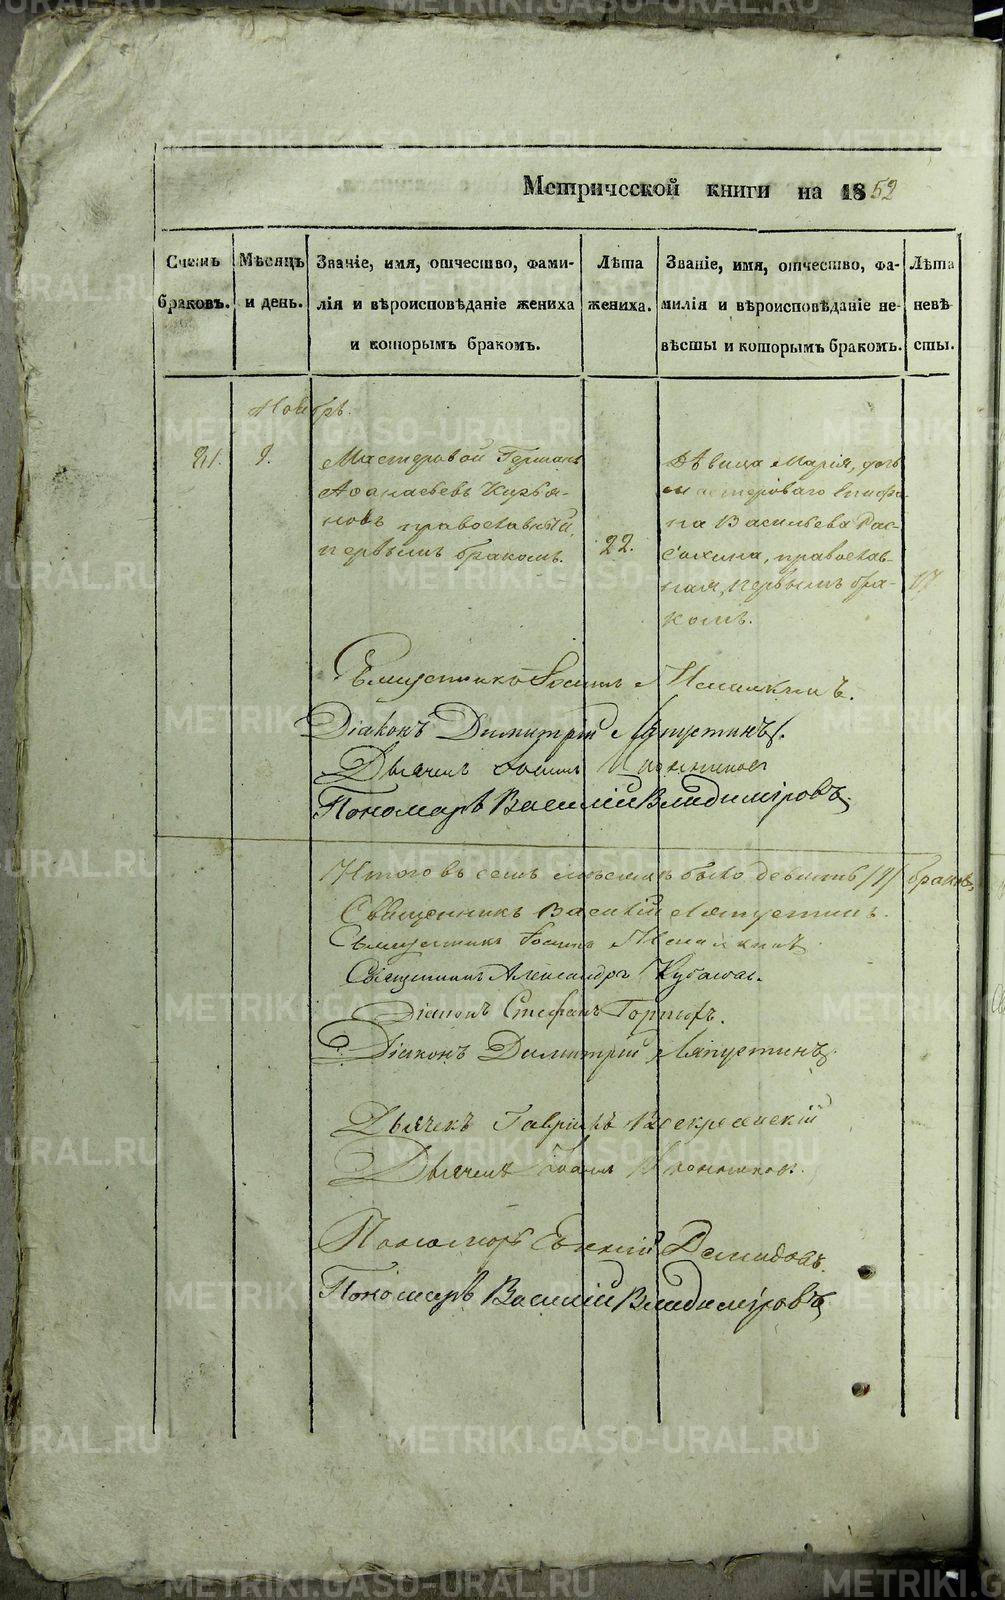 Метрической книги на 1852
Счетъ браковъ.
Мѣсяцъ и день.
Званіе, имя, отчество, фами-
лія и вѣроисповѣданіе жениха
и которымъ бракомъ.
Лѣта
жениха.
Званіе, имя, отчество, фа-
милія и вѣроисповѣданіе не-
вѣсты и которымъ бракомъ.
Лѣта
невѣ
сты.
Ноябрь.
9.
Мастеровой Германъ
Аѳанасьевъ
православный,
первымъ бракомъ.
22.
Дѣвица Марія, дочь
мастероваго
на Васильева Рас-
сохина, православ-
ная, первымъ бра-
комъ.
17
Діаконъ Димитрій Ляпустинъ.
Дьячекъ
Пономарь Василій Владиміровъ.
Итого въ семъ мѣсяцѣ было девять /9/ браковъ,
Священникъ Василій Ляпустинъ.
Священникъ Александръ
Діаконъ Стефанъ
Діаконъ Димитрій Ляпустинъ.
Дьячекъ Гавріилъ Воскресенскій
Дьячекъ
Пономарь Евгеній Демидовъ.
Пономарь Василій Владиміровъ
METRIKI.GASO-URAL.RU